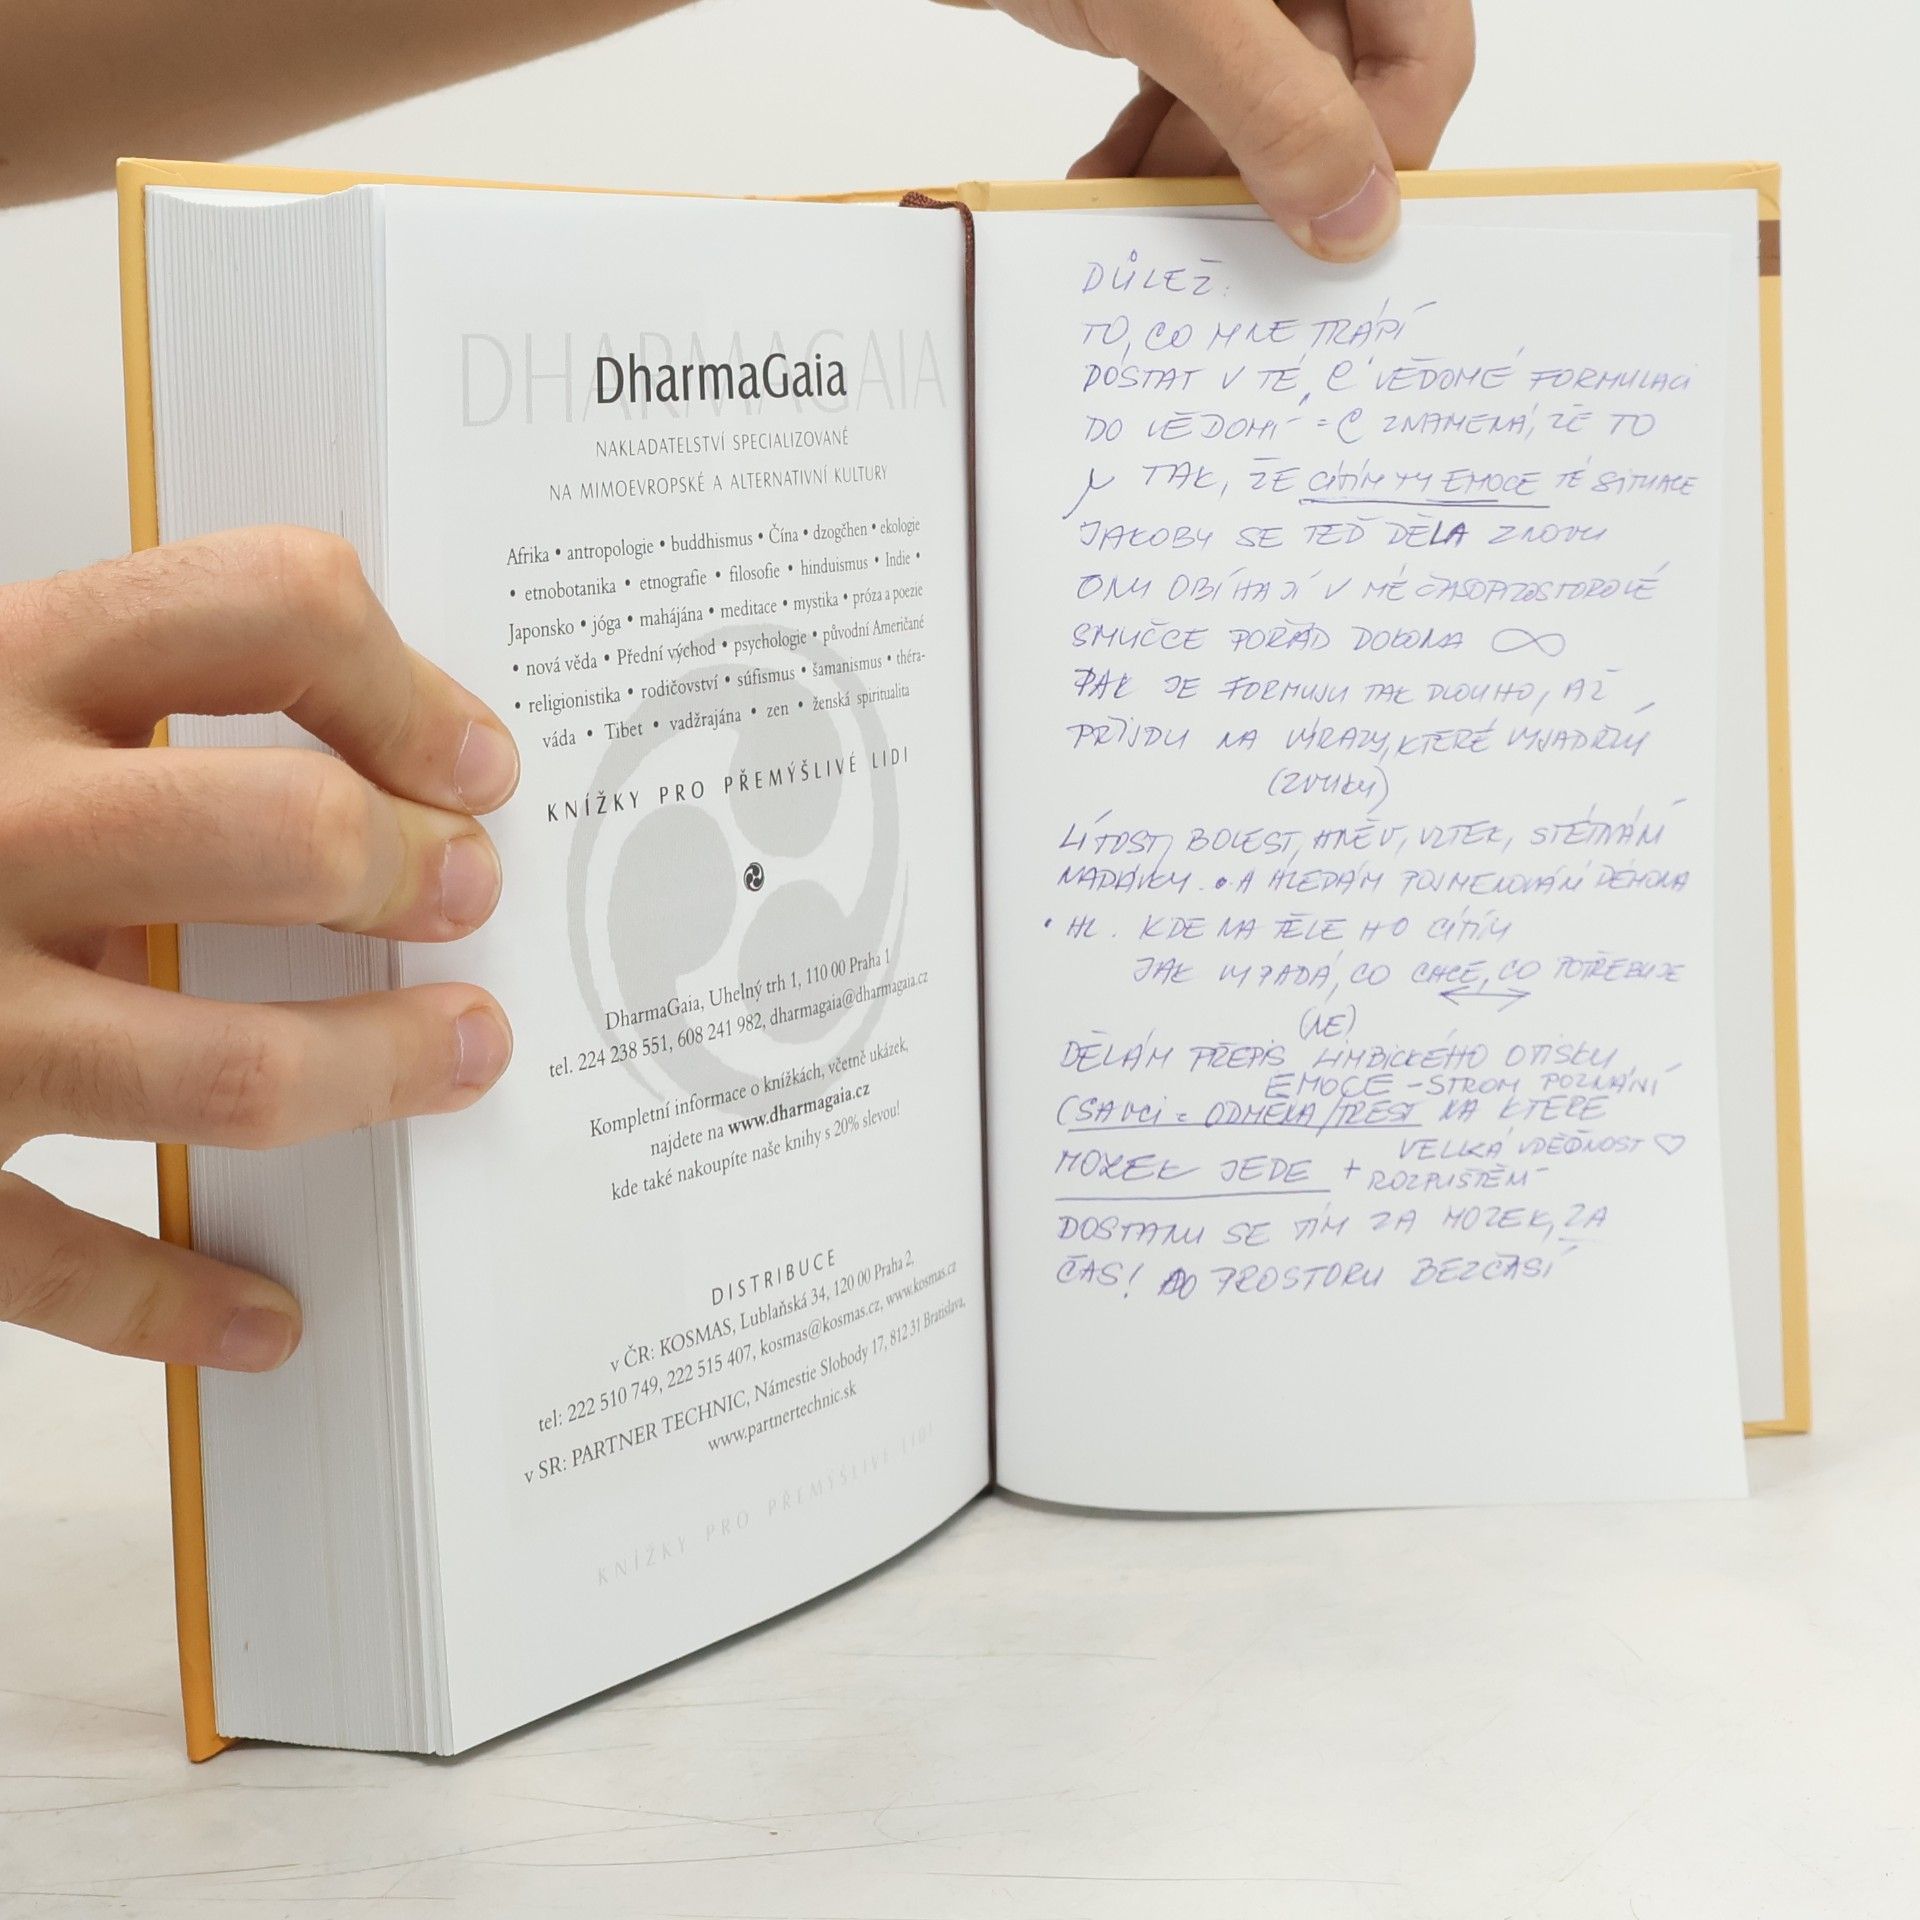 DHARMAGAIA
DharmaGaia
NAKLADATELSTVÍ SPECIALIZOVANÉ
NA MIMOEVROPSKÉ A ALTERNATIVNÍ KULTURY
Afrika • antropologie • buddhismus • Čína • dzogčhen • ekologie
• etnobotanika • etnografie • filosofie • hinduismus • Indie •
Japonsko • jóga • mahájána • meditace • mystika • próza a poezie
• nová věda • Přední východ • psychologie • původní Američané
• religionistika • rodičovství • súfismus • šamanismus • théra-
váda • Tibet • vadžrajána • zen • ženská spiritualita
KNÍŽKY PRO PŘEMÝŠLIVÉ LIDI
DharmaGaia, Uhelný trh 1, 110 00 Praha 1
tel. 224 238 551, 608 241 982, dharmagaia@dharmagaia.cz
Kompletní informace o knížkách, včetně ukázek,
najdete na www.dharmagaia.cz
kde také nakoupíte naše knihy s 20% slevou!
DISTRIBUCE
v ČR: KOSMAS, Lublaňská 34, 120 00 Praha 2,
tel: 222 510 749, 222 515 407, kosmas@kosmas.cz, www.kosmas.cz
v SR: PARTNER TECHNIC, Námestie Slobody 17, 812 31 Bratislava,
www.partnertechnic.sk
KNÍŽKY PRO PŘEMÝŠLIVÉ LIDI
DŮLEŽ:
TO, CO MNE TRÁPÍ
DOSTAT V TÉ VĚDOMÉ FORMULACI
DO VĚDOMÍ = ZNAMENÁ, ŽE TO
TAK, ŽE CÍTÍM TY EMOCE TÉ SITUACE
JAKOBY SE TEĎ DĚLA ZNOVU
ONY OBÍHAJÍ V MÉ ČASOPROSTOROVÉ
SMYČCE POŘÁD DOKOLA ∞
PAK JE FORMUJU TAK DLOUHO, AŽ
PŘIJDU NA VÝRAZY, KTERÉ VYJADŘUJÍ
(ZVUKY)
LÍTOST, BOLEST, HNĚV, VZTEK, STÉNÁNÍ
NADÁVKY. • A HLEDÁM POJMENOVÁNÍ DÉMONA
• HL. KDE NA TĚLE HO CÍTÍM
JAK VYPADÁ, CO CHCE, CO POTŘEBUJE
(NE)
DĚLÁM PŘEPIS LIMBICKÉHO OTISKU
EMOCE - STROM POZNÁNÍ
(SAVCI = ODMĚNA/TREST NA KTERÉ
MOZEK JEDE + VELKÁ VDĚČNOST ♡
ROZPUŠTĚNÍ
DOSTANU SE TÍM ZA MOZEK, ZA
ČAS! DO PROSTORU BEZČASÍ